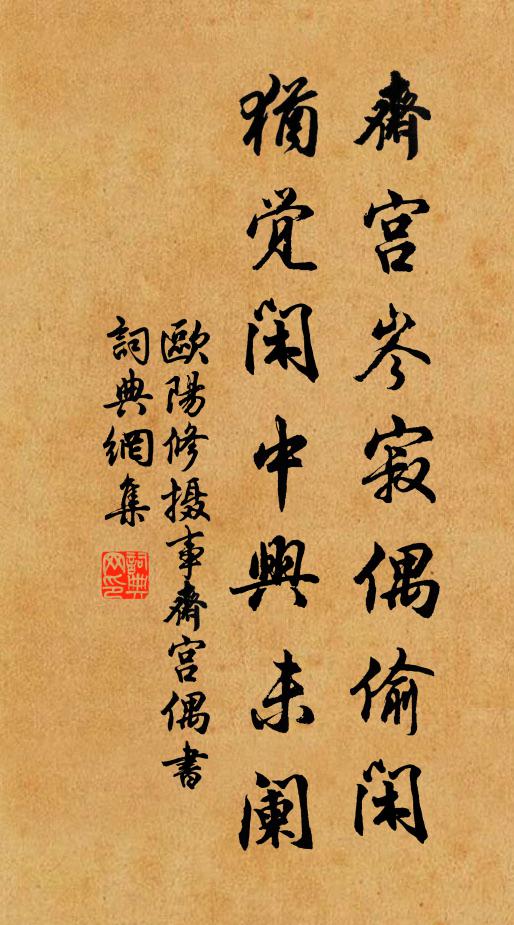 齋宫岑寂偶偷閑
猶覺閑中興未闌
歐陽修攝事齋宫偶書
詞典網集
詞典
网印